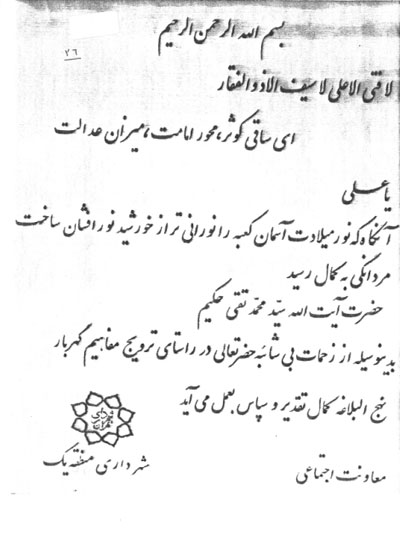 بسم الله الرحمن الرحیم
۲۶
لا فتی الا علی لا سیف الا ذوالفقار
ای ساقی کوثر، محور امامت، میزان عدالت
یا علی
آنگاه که نور میلادت آسمان کعبه را نورانی تر از خورشید نور افشان ساخت
مردانگی به کمال رسید
حضرت آیت الله سیّد محمّد تقی حکیم
بدینوسیله از زحمات بی شائبه حضرتعالی در راستای ترویج مفاهیم گهربار
نهج البلاغه کمال تقدیر و سپاس بعمل می آید
شهرداری تهران
معاونت اجتماعی
شهرداری منطقه یک